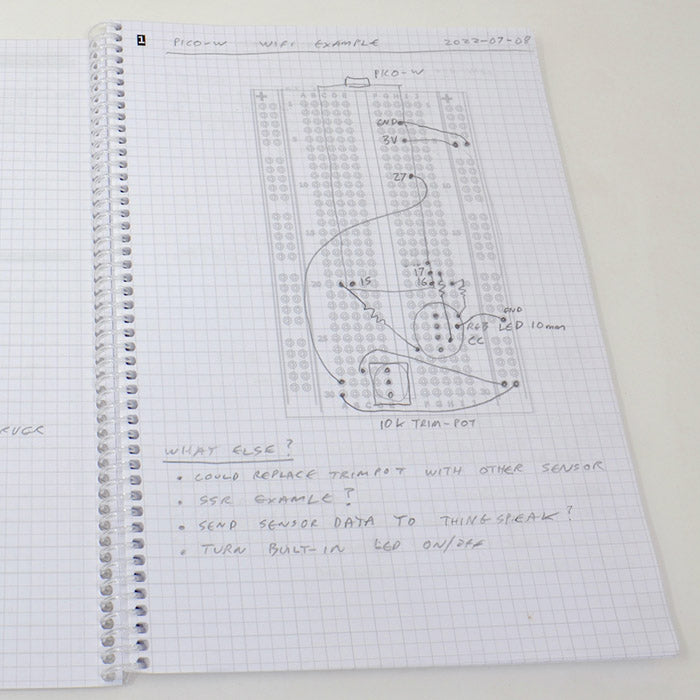 1
PICO-W WIFI EXAMPLE 2022-07-08
PICO-W
GND
3V
27
17
16
15
GND
RGB LED 10mm
CC
10K TRIM-POT
WHAT ELSE?
• COULD REPLACE TRIMPOT WITH OTHER SENSOR
• SSR EXAMLE?
• SEND SENSOR DATA TO THINGSPEAK?
• TURN BUILT-IN LED ON/OFF